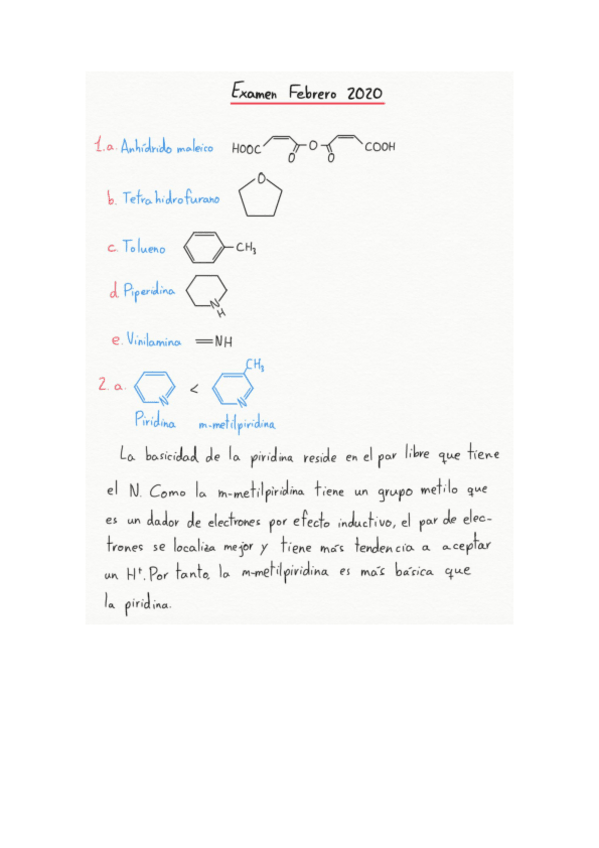 Examen Febrero 2020
1.a. Anhídrido maleico HOOC O O O COOH
b. Tetrahidrofurano O
c. Tolueno CH3
d. Piperidina N H
e. Vinilamina =NH
2. a. N < N CH3
Piridina m-metilpiridina
La basicidad de la piridina reside en el par libre que tiene
el N. Como la m-metilpiridina tiene un grupo metilo que
es un dador de electrones por efecto inductivo, el par de elec-
trones se localiza mejor y tiene más tendencia a aceptar
un H+. Por tanto, la m-metilpiridina es más básica que
la piridina.